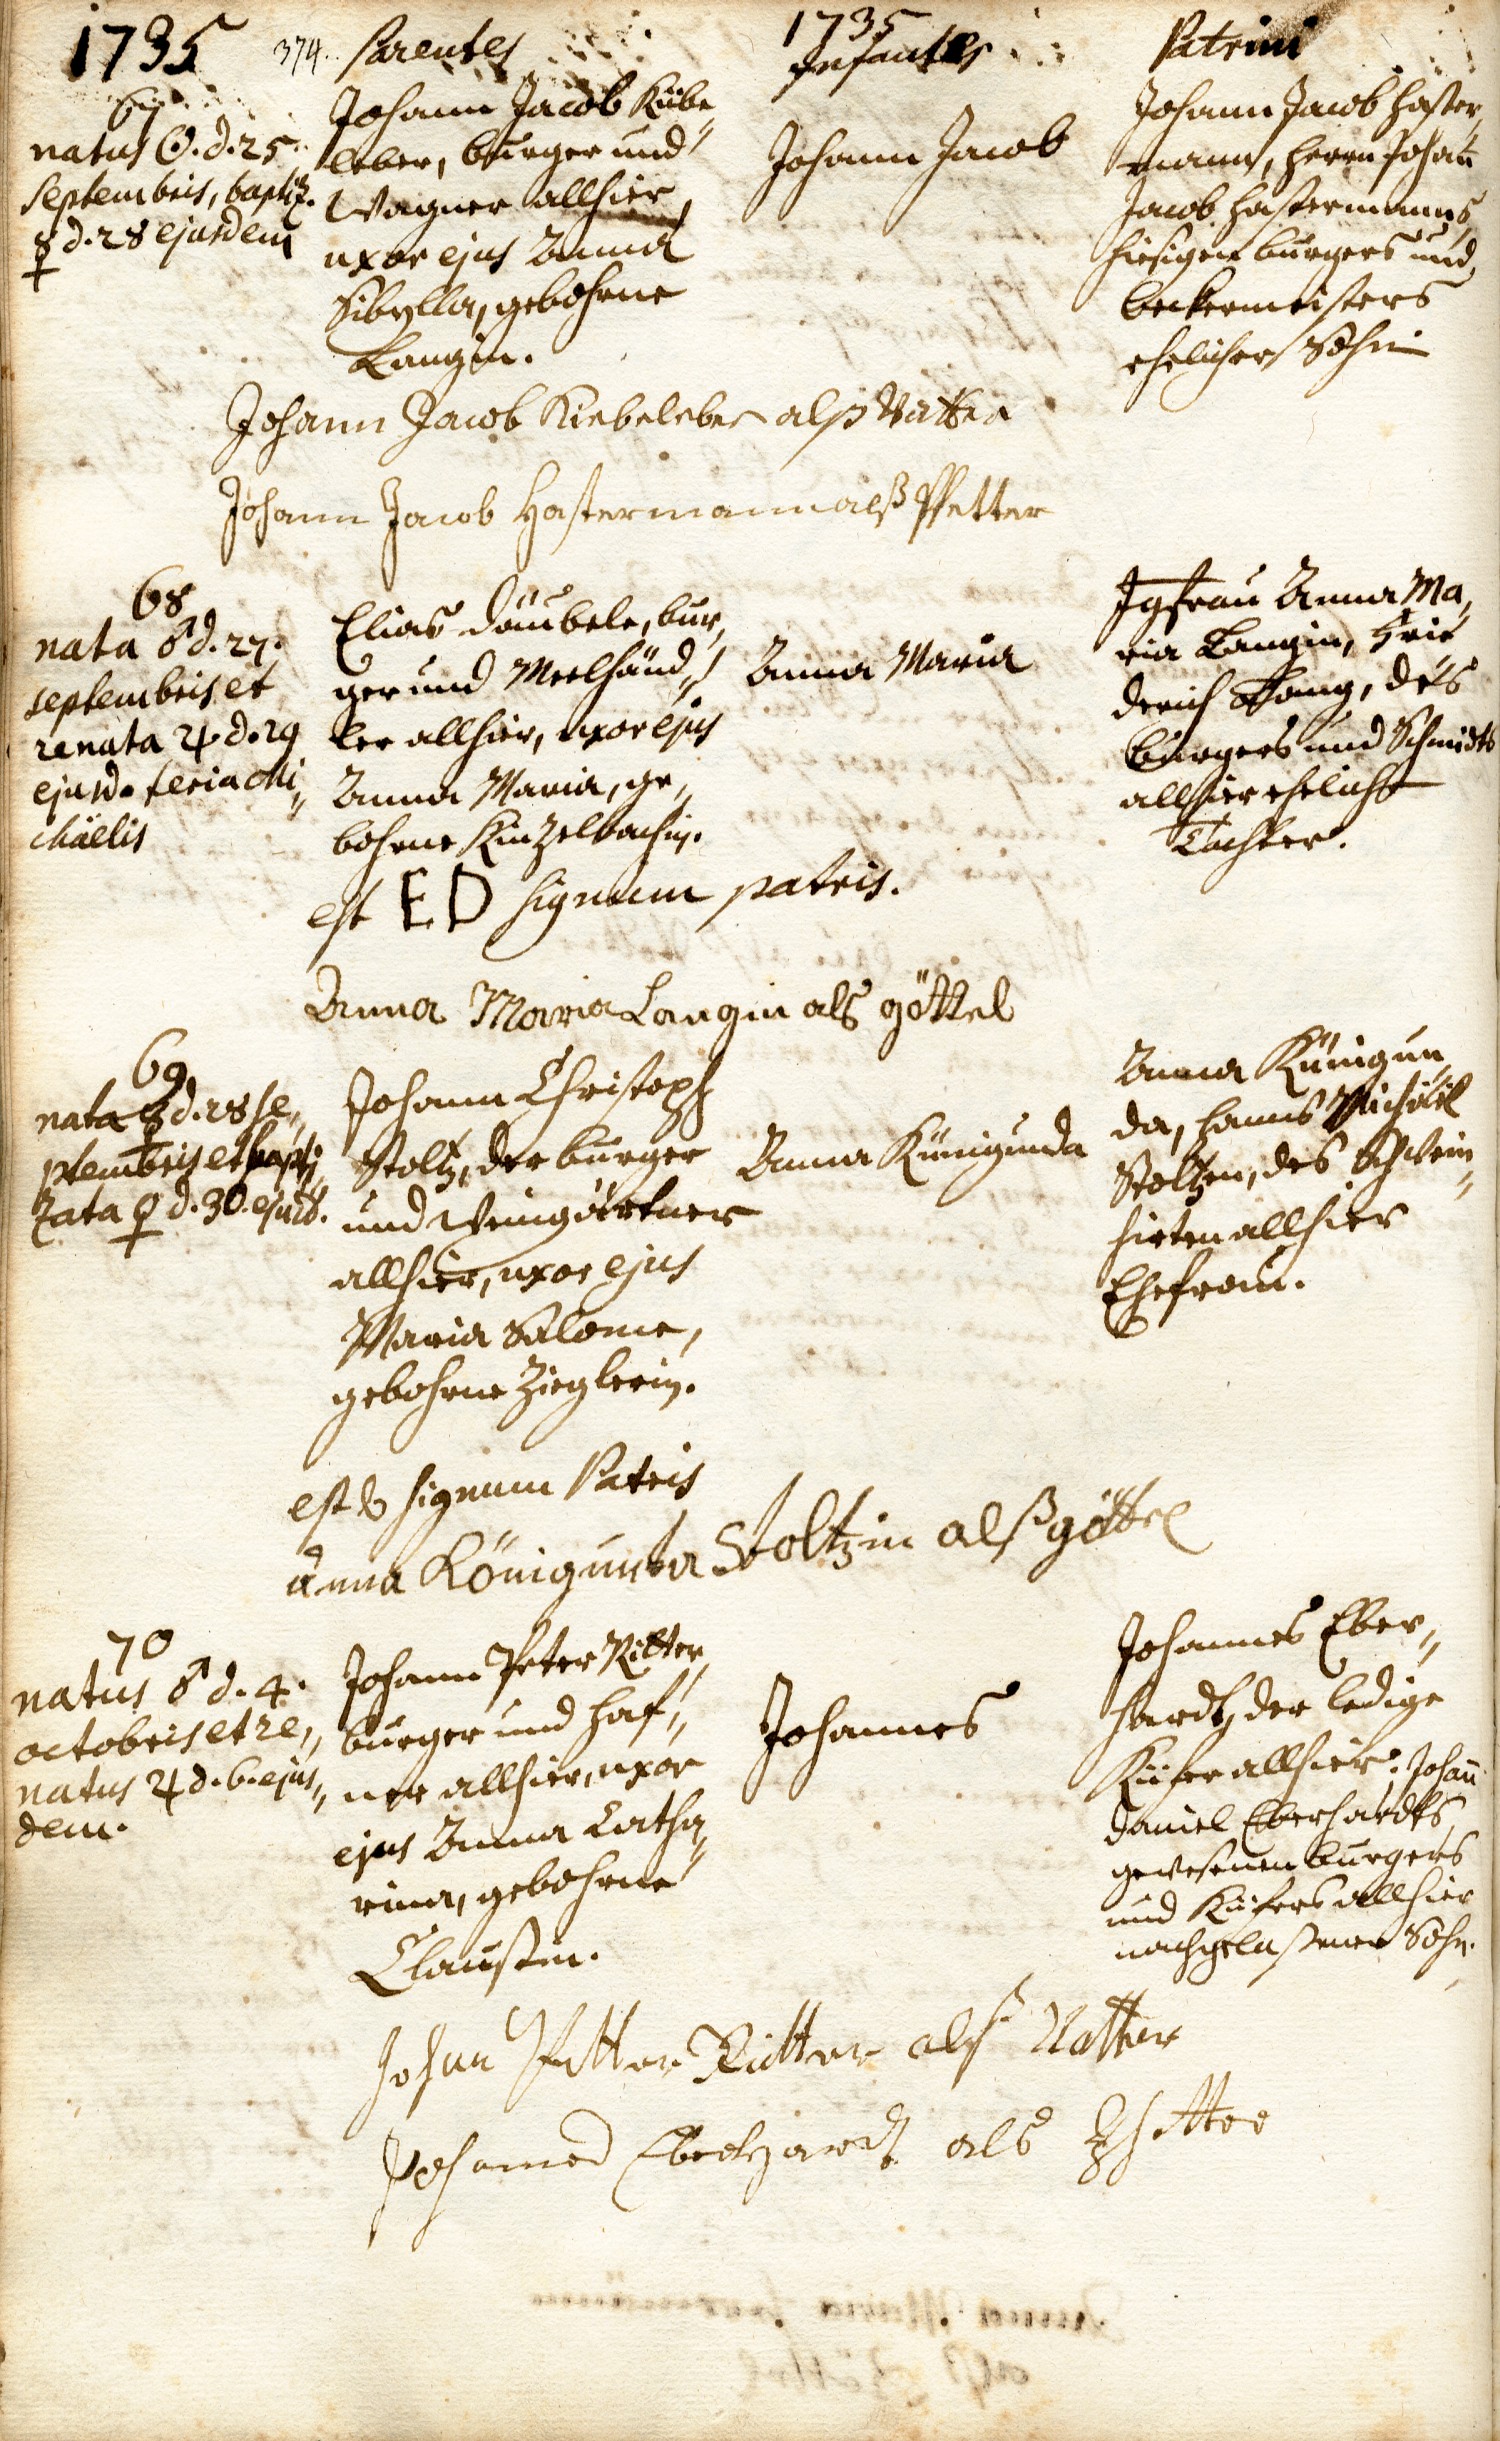 1735
374.
Parentes
1735
Infantes
Patrini
67
natus ☉. d. 25.
Septembris, baptiz.
☿ d. 28 ejusdem
Johann Jacob Kübe„
leber, burger und
Wagner allhier,
uxor ejus Anna
Sibylla, gebohrne
Langin.
Johann Jacob
Johann Jacob Haster„
mann, Herrn Johañ
Jacob Hastermanns,
hiesigen burgers und
beckermeisters
ehelicher Sohn
Johann Jacob Kiebeleber alß Vatter
Johann Jacob Hastermann alß Pfetter
68
nata ♂ d. 27.
septembris et
renata ♃ d. 29
ejusd. feria Mi„
chaëlis
Elias Däubele, bur„
ger und Meelhänd„
ler allhier, uxor ejus
Anna Maria, ge„
bohrne Kinzelbachin.
Anna Maria
Jgfrau Anna Ma„
ria Langin, Frie
derich Lang, des
burgers und Schmidts
allhier eheliche
Tochter.
est ED signum patris.
Anna Maria Langin als göttel
69
nata ☿ d. 28 se„
ptembris et bapti„
zata ♀ d. 30. ejusd.
Johann Christoph
Stoltz, der burger
und Weingärtner
allhier, uxor ejus
Maria Salome,
gebohrne Zieglerin.
Anna Künigunda
Anna Künigun„
da, Hanns Michael
Stoltzen, des Schwein„
hirten allhier
Ehefrau.
est signum Patris
anna Königunta Stoltzin alß göttel
70
natus ♂ d. 4.
octobris et re„
natus ♃ d. 6. ejus„
dem.
Johann Peter Ritter,
burger und Haf„
ner allhier, uxor
ejus Anna Catha„
rina, gebohrne
Claussin.
Johannes
Johannes Eber„
hardt, der ledige
Küfer allhier, Johañ
Daniel Eberhardts,
gewesenen burgers
und Küfers allhier
nachgelaßener Sohn.
Johan Petter Ritter alß Vatter
Johannes Eberhardt als Pfetter